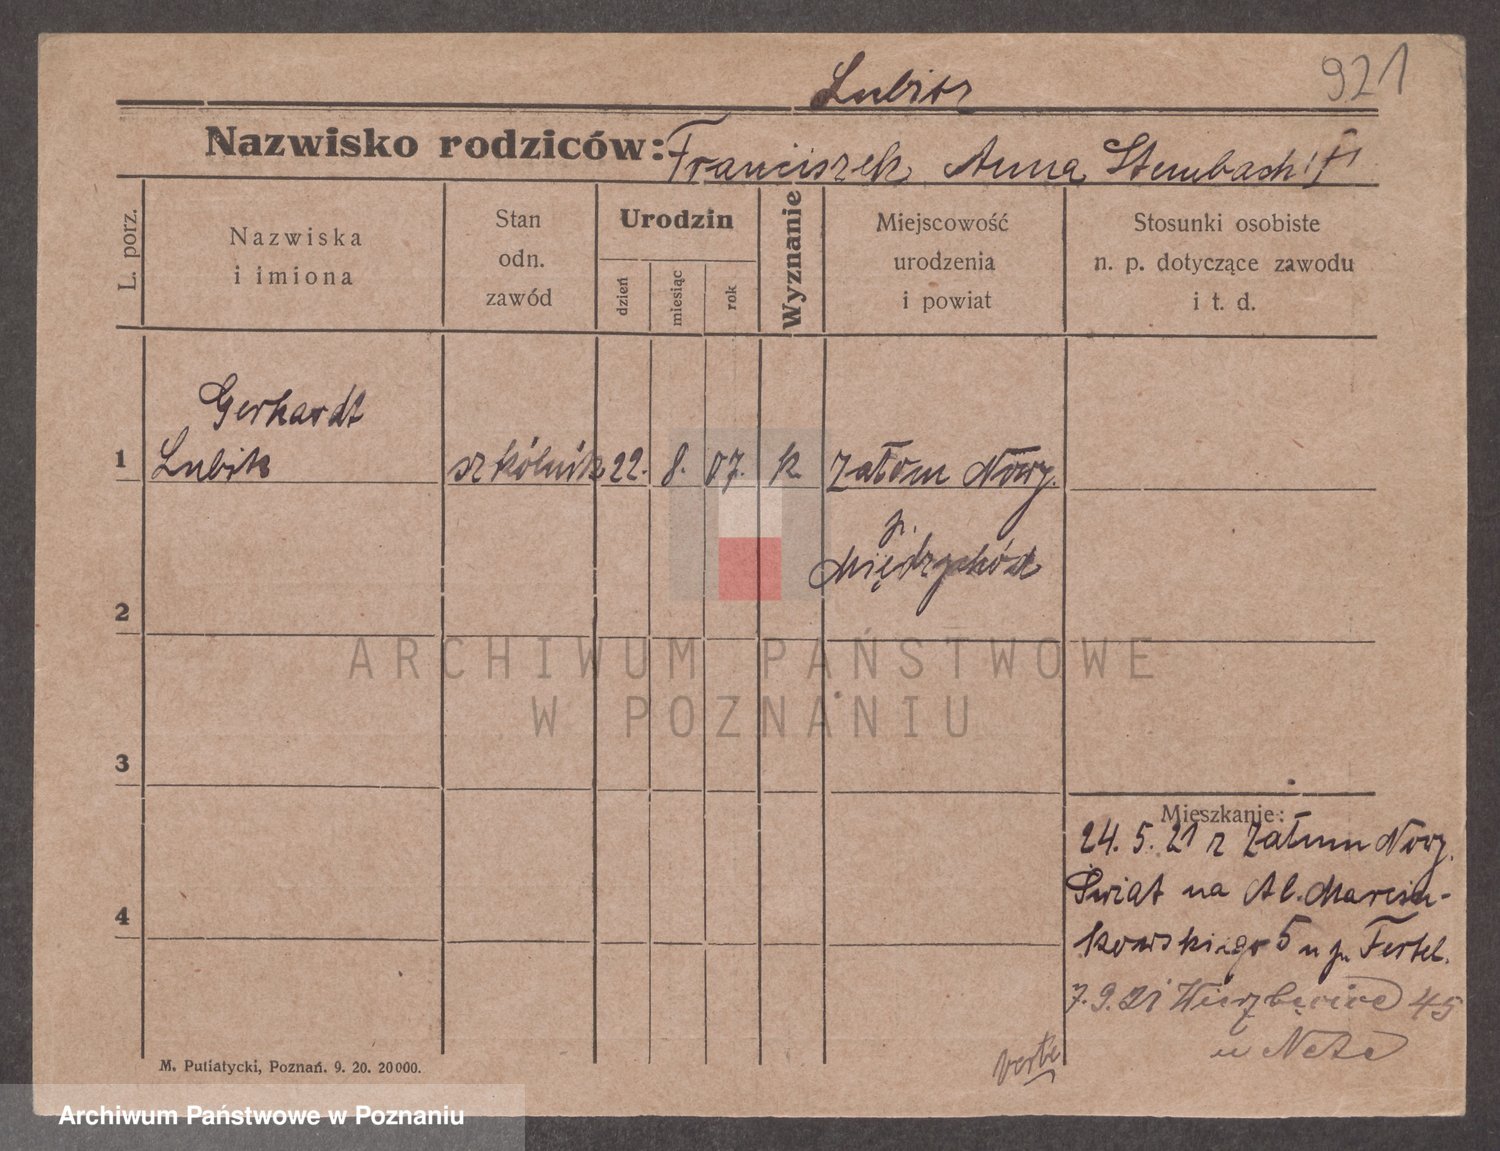 921
Nazwisko rodziców: Franciszek, Anna
L. porz.
Nazwiska
i imiona
Stan
odn.
zawód
Urodzin
dzień
miesiąc
rok
Wyznanie
Miejscowość
urodzenia
i powiat
Stosunki osobiste
n. p. dotyczące zawodu
i t. d.
Gerhardt
1 szkólnik 22. 8. 07. k Załom Nowy.
p.
Międzychód
2
ARCHIWUM PAŃSTWOWE
W POZNANIU
3
Mieszkanie:
24. 5. 21 z Załom Nowy.
Świat na Al. Marcin-
4
kowskiego 5 u p. Fertel.
7.9.21 Wierzbięcice 45
u
verte
M. Putiatycki, Poznań. 9. 20. 20000.
Archiwum Państwowe w Poznaniu